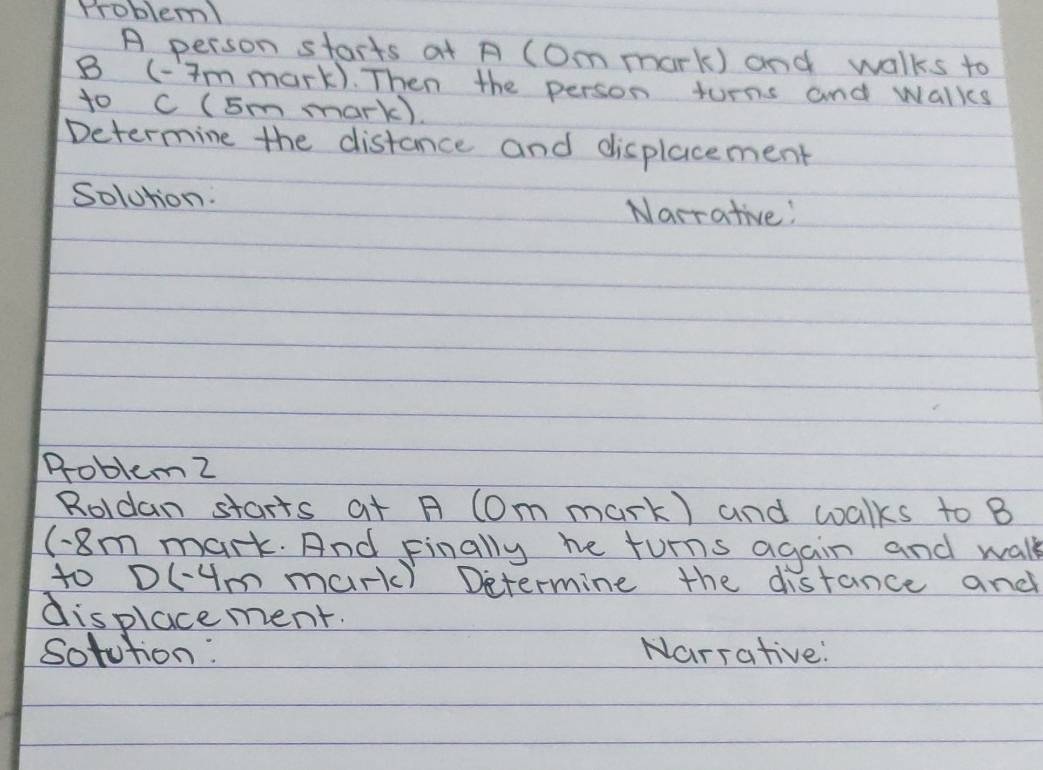 Problem1
A person starts at A (0m mark) and walks to
B (-7m mark). Then the person turns and walks
to C (5m mark).
Determine the distance and displacement
Solution:
Narrative:
Problem 2
Roldan starts at A (0m mark) and walks to B
(-8m mark. And Finally he turns again and walk
to D(-4m mark) Determine the distance and
displacement.
Solution:
Narrative: